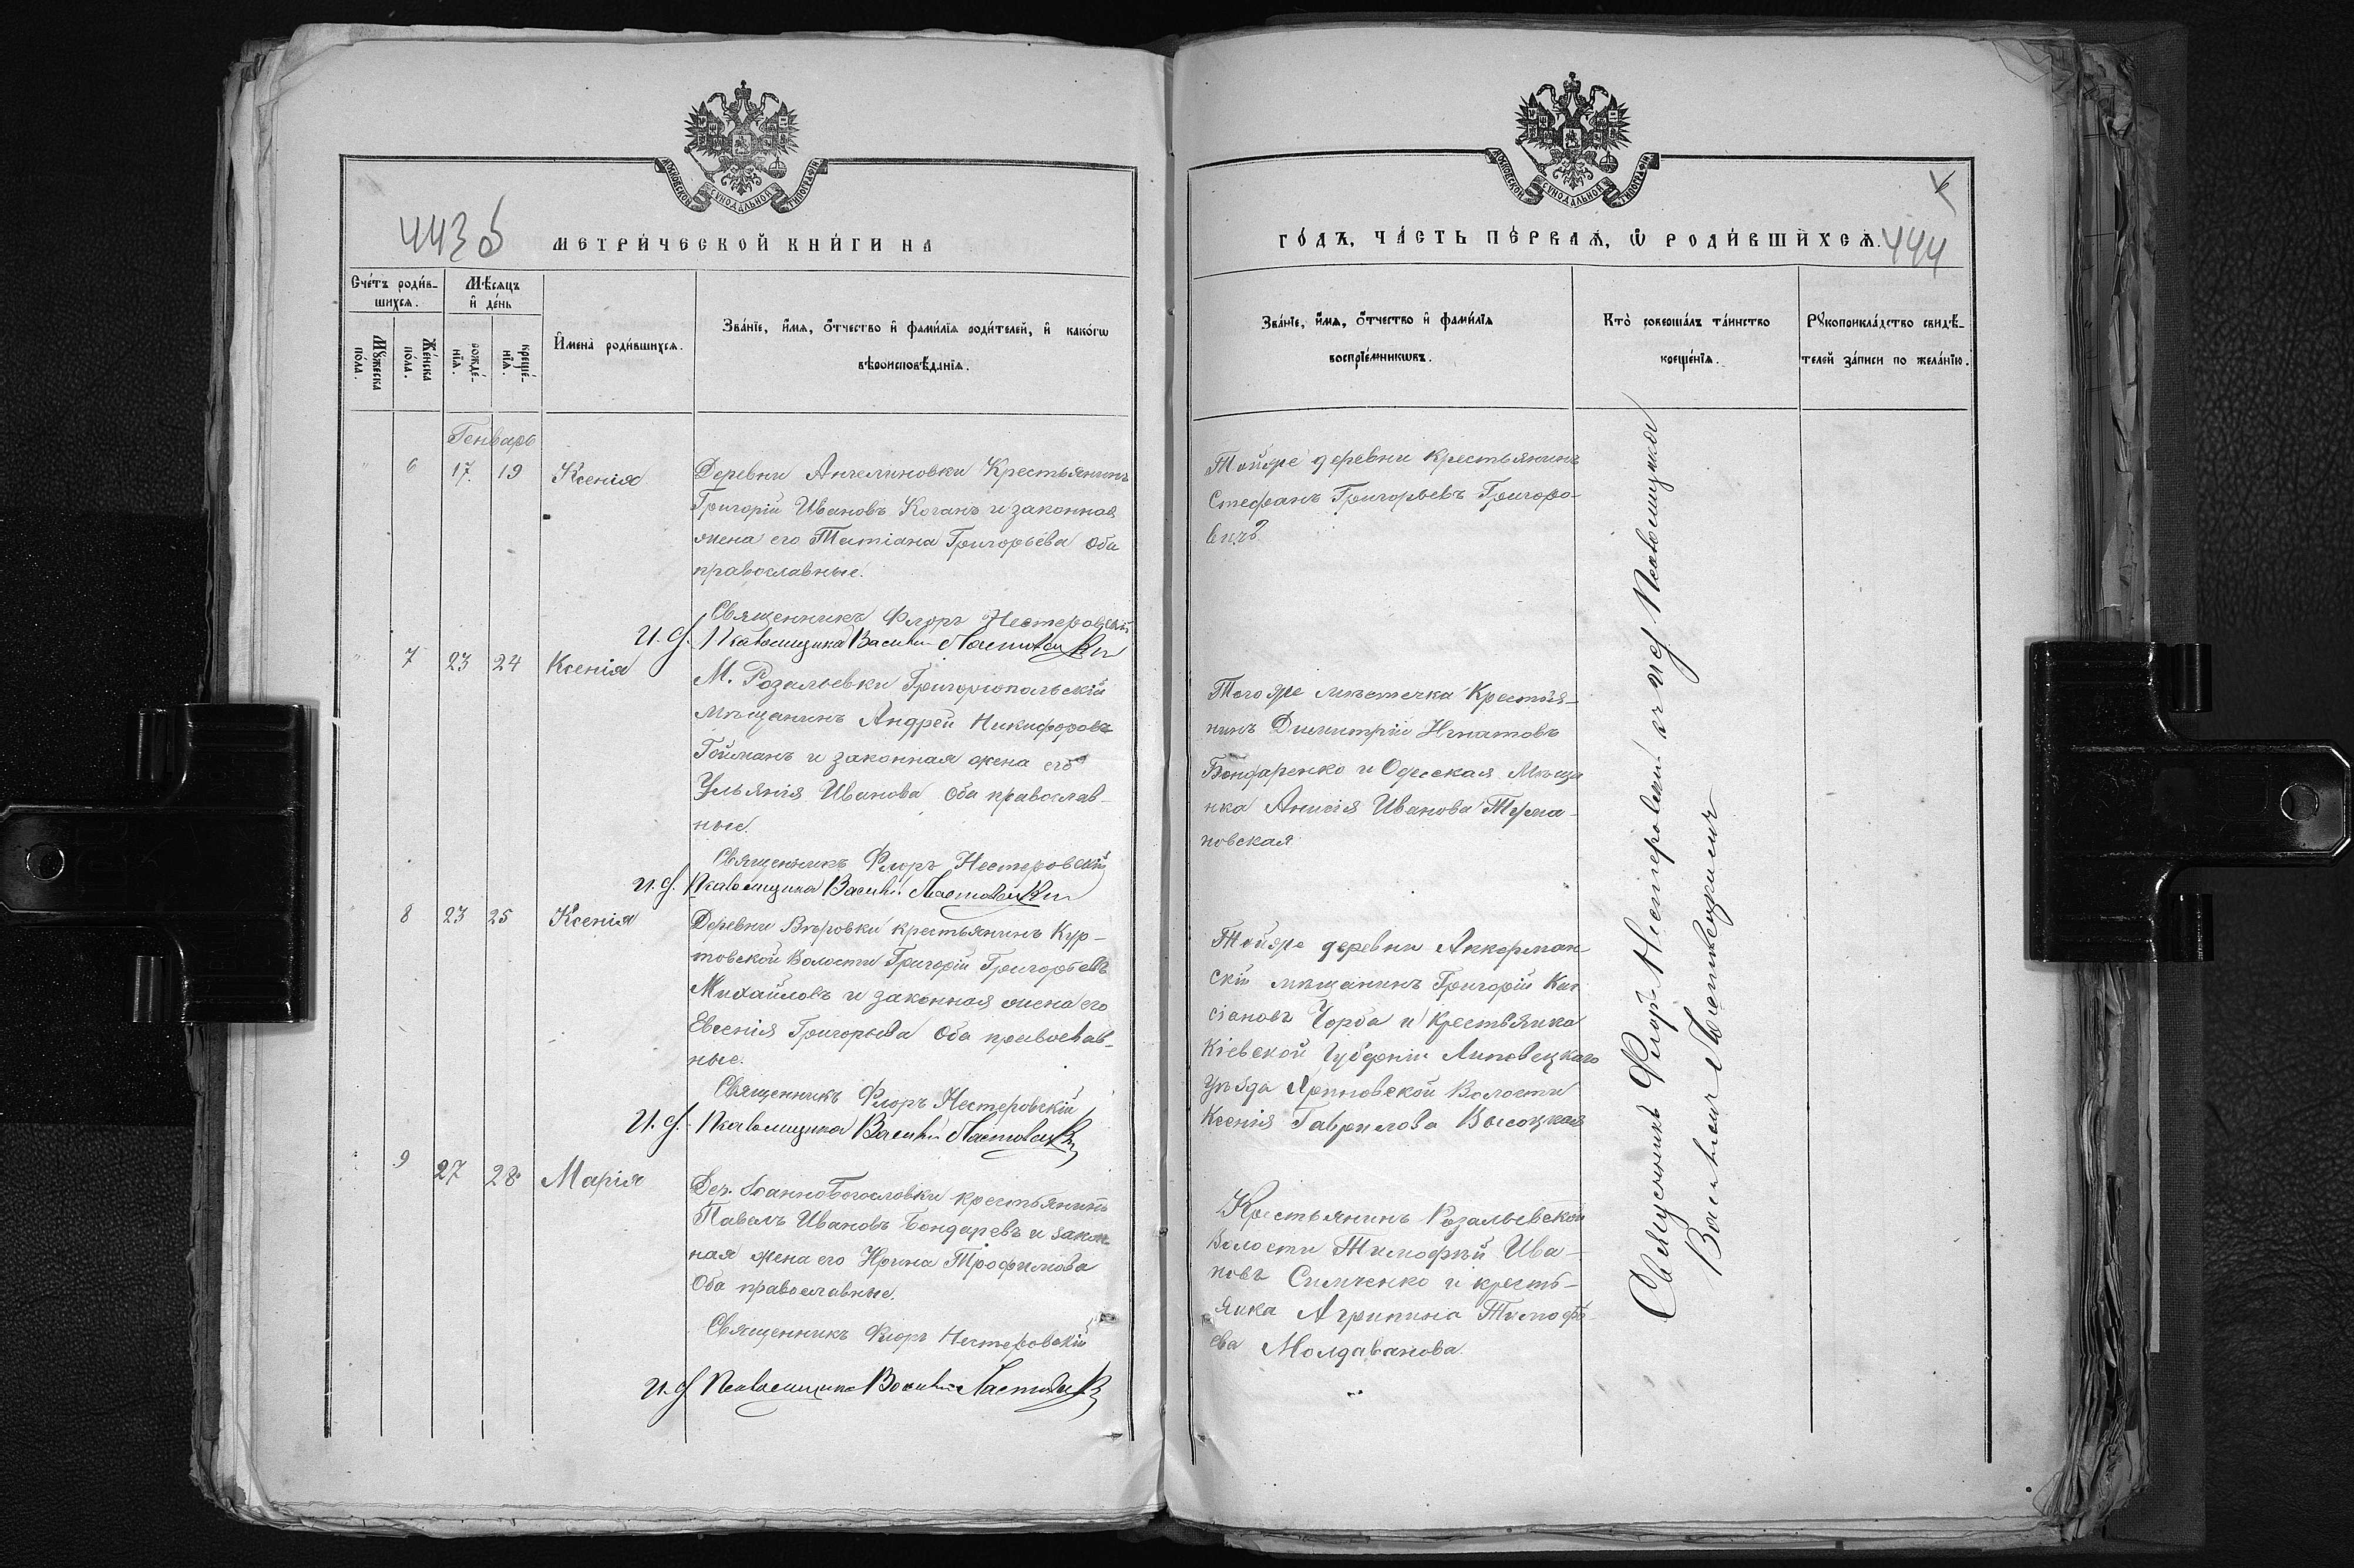 МОСКОВСКОЙ СУНОДАЛЬНОЙ ТИПОГРАФІИ
443 об
МЕТРИ́ЧЕСКОЙ КНИ́ГИ НА
Сче́тъ роди́в-
шихсѧ.
Мѣ́сѧцъ
и҆ де́нь
Мꙋ́жеска
по́ла.
Же́нска
по́ла.
рожде́-
нїѧ.
креще́-
нїѧ.
И҆мена̀ роди́вшихсѧ.
Зва́нїе, и҆́мѧ, ѻ҆́тчество и҆ фами́лїѧ роди́телей, и҆ како́гѡ
вѣроисповѣ́данїѧ.
Генварь
" 6 17. 19 Ксенія
Деревни Ангелиновки Крестьянинъ
Григорій Ивановъ Коганъ и законная
жена его Татіана Григорьева Оба
православные.
Священникъ Флоръ Нестеровскій
И. д. Псаломщика Василій Ластовецкій
" 7 23 24 Ксенія
М. Розальевки Григоріопольскій
мѣщанинъ Андрей Никифоровъ
Гойманъ и законная жена его
Ульянія Иванова Оба православ-
ные.
Священникъ Флоръ Нестеровскій
И. д. Псаломщика Василій Ластовецкій
8 23 25 Ксенія
Деревни Вѣровки крестьянинъ Кур-
товской Волости Григорій Григорьевъ
Михайловъ и законная жена его
Евгенія Григорьева Оба православ-
ные.
Священникъ Флоръ Нестеровскій
И. д. Псаломщика Василій Ластовецкій
9 27 28 Марія
Дер. Іоанно Богословки крестьянинъ
Павелъ Ивановъ Бондаревъ и закон-
ная жена его Ирина Трофимова
Оба православные.
Священникъ Флоръ Нестеровскій
И. д. Псаломщика Василій Ластовецкій
МОСКОВСКОЙ СУНОДАЛЬНОЙ ТИПОГРАФІИ
ГО́ДЪ, ЧА́СТЬ ПЕ́РВАѦ, Ѡ҆ РОДИ́ВШИХСѦ.
444
Зва́нїе, и҆́мѧ, ѻ҆́тчество и҆ фами́лїѧ
воспрїе́мникѡвъ.
Кто̀ соверша́лъ та́инство
креще́нїѧ.
Рꙋкоприкла́дство свидѣ́-
телей за́писи по жела́нїю.
Той же деревни крестьянинъ
Стефанъ Григорьевъ Григоро-
вичъ
Того же мѣстечка Крестья-
нинъ Димитрій Игнатовъ
Бондаренко и Одесская Мѣща
нка Анисія Иванова Тума-
новская
Той же деревни Аккерман
скій мѣщанинъ Григорій Кас
сіановъ Чорба и Крестьянка
Кіевской Губерніи Липовецкаго
Уѣзда Волости
Ксенія Гаврилова Высоцкая
Крестьянинъ Розальевской
Волости Тимофей Ива-
новъ Симченко и кресть-
янка Агрипина Тимофѣ
ева Молдаванова.
Священникъ Флоръ Нестеровскій съ и. д. Псаломщика
Василіемъ Ластовецкимъ